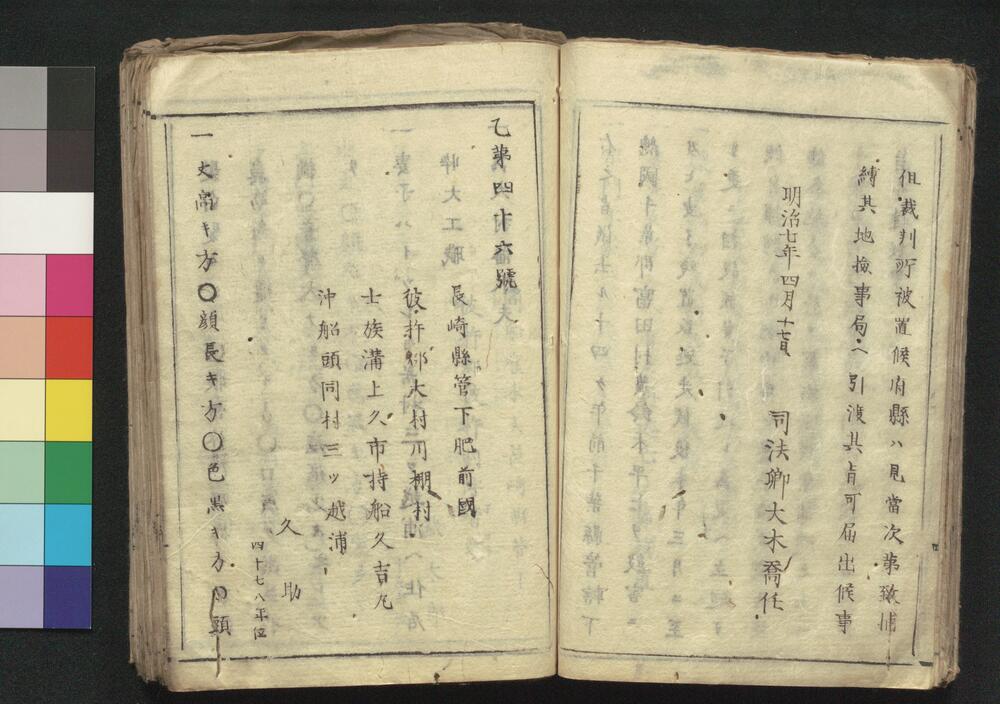 但裁判所被置候府縣ハ見當次第致捕
縛其地檢事局ヘ引渡其旨可届出候事
明治七年四月十七日
司法卿大木喬任
乙第四十六號
長崎縣管下肥前國
彼杵郡大村川棚村
士族溝上久市持船久吉丸
沖船頭同村三ツ越浦
久助
四十七八年位
一丈高キ方〇顔長キ方〇色黒キ方〇頭